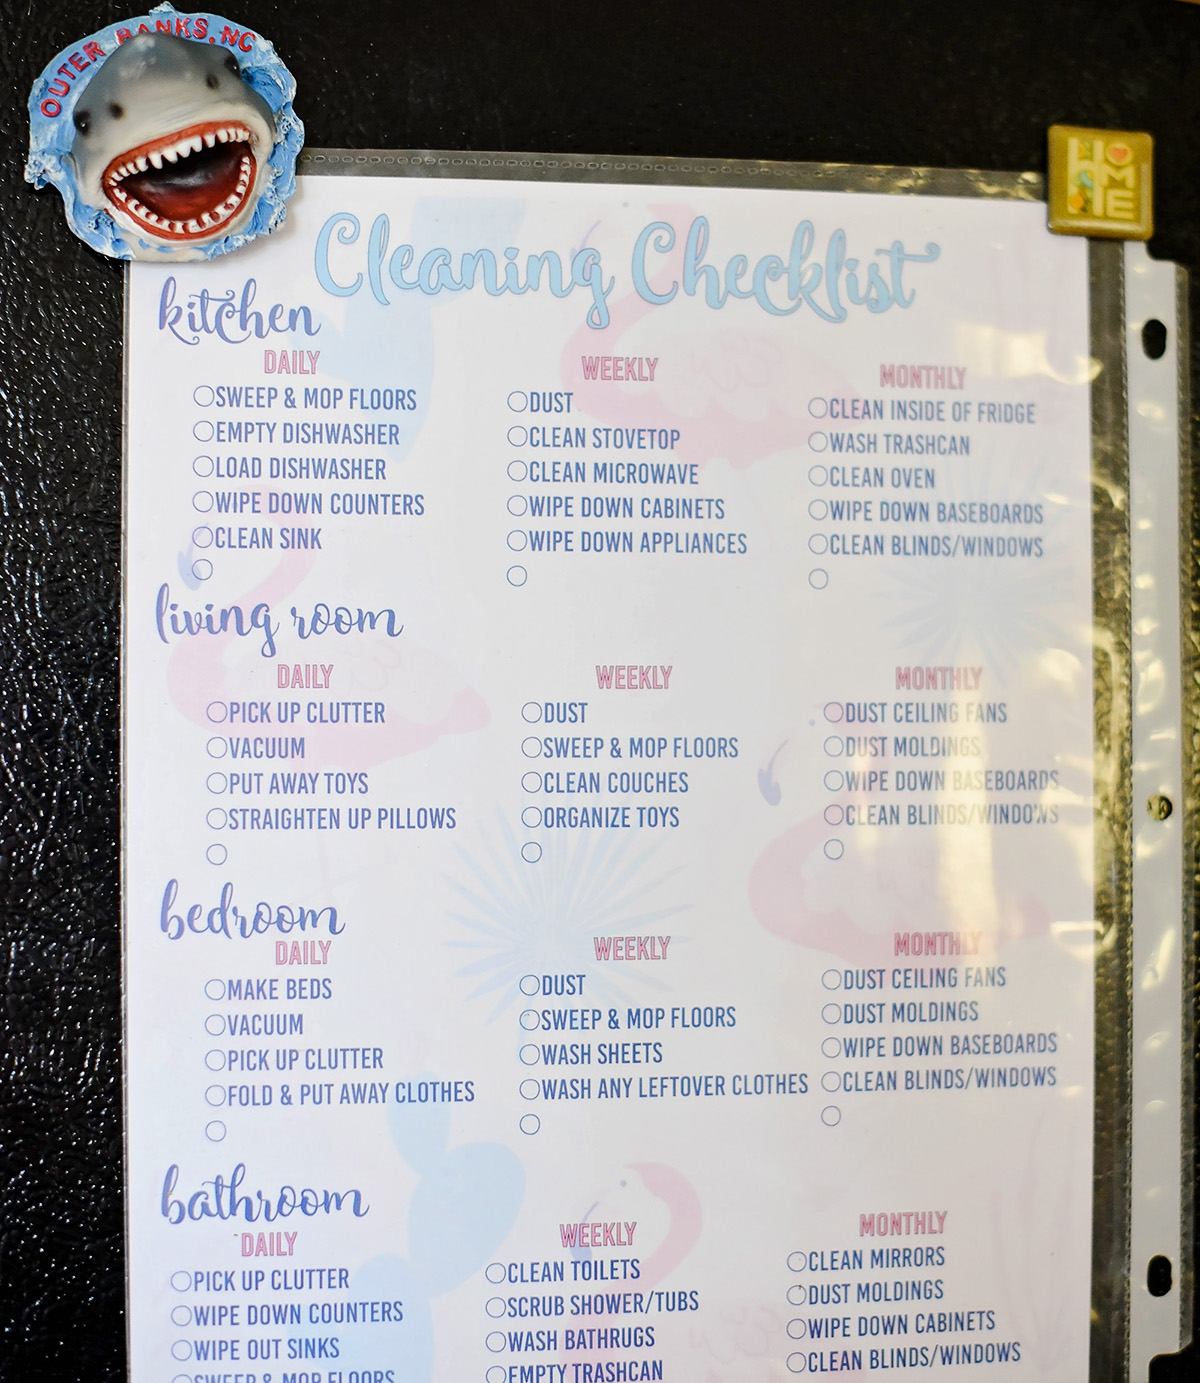 OUTER BANKS, NC
HOME
Cleaning Checklist
kitchen
DAILY
SWEEP & MOP FLOORS
EMPTY DISHWASHER
LOAD DISHWASHER
WIPE DOWN COUNTERS
CLEAN SINK
WEEKLY
DUST
CLEAN STOVETOP
CLEAN MICROWAVE
WIPE DOWN CABINETS
WIPE DOWN APPLIANCES
MONTHLY
CLEAN INSIDE OF FRIDGE
WASH TRASHCAN
CLEAN OVEN
WIPE DOWN BASEBOARDS
CLEAN BLINDS/WINDOWS
living room
DAILY
PICK UP CLUTTER
VACUUM
PUT AWAY TOYS
STRAIGHTEN UP PILLOWS
WEEKLY
DUST
SWEEP & MOP FLOORS
CLEAN COUCHES
ORGANIZE TOYS
MONTHLY
DUST CEILING FANS
DUST MOLDINGS
WIPE DOWN BASEBOARDS
CLEAN BLINDS/WINDOWS
bedroom
DAILY
MAKE BEDS
VACUUM
PICK UP CLUTTER
FOLD & PUT AWAY CLOTHES
WEEKLY
DUST
SWEEP & MOP FLOORS
WASH SHEETS
WASH ANY LEFTOVER CLOTHES
MONTHLY
DUST CEILING FANS
DUST MOLDINGS
WIPE DOWN BASEBOARDS
CLEAN BLINDS/WINDOWS
bathroom
DAILY
PICK UP CLUTTER
WIPE DOWN COUNTERS
WIPE OUT SINKS
SWEEP & MOP FLOORS
WEEKLY
CLEAN TOILETS
SCRUB SHOWER/TUBS
WASH BATHRUGS
EMPTY TRASHCAN
MONTHLY
CLEAN MIRRORS
DUST MOLDINGS
WIPE DOWN CABINETS
CLEAN BLINDS/WINDOWS